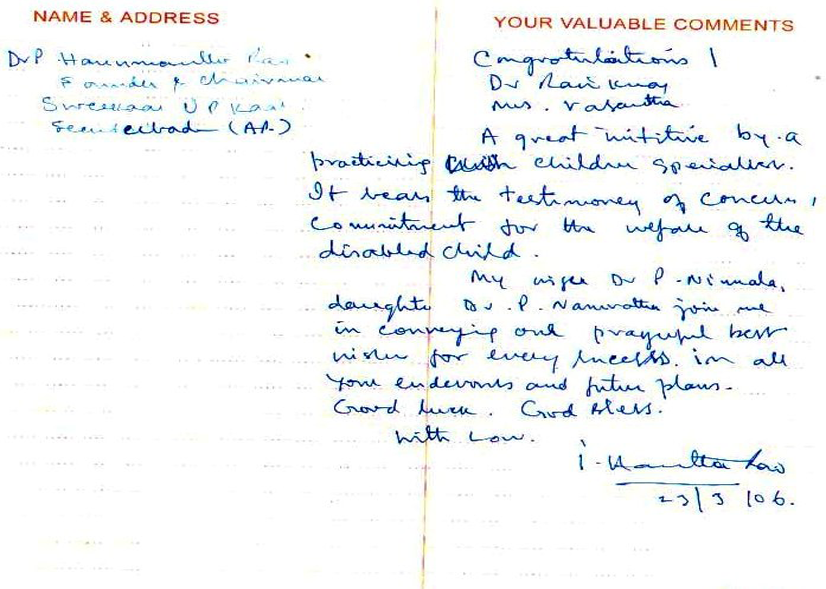 NAME & ADDRESS
Dr P. Hanumantho Rao
Founder & Chairman
Sweekaar UPKaar
Secunderabad (AP.)
YOUR VALUABLE COMMENTS
Congratulations !
Dr Ravi Kumar
Mrs. Vasantha
A great inititive by a
practicing children specialist.
It bears the testimoney of concern,
commitment for the welfare of the
disabled child.
My wife Dr P. Nirmala,
daughter Dr. P. Namratha join me
in conveying our prayerful best
wishes for every success in all
your endevours and future plans.
Good luck. God Bless.
With Love.
23/3/06.